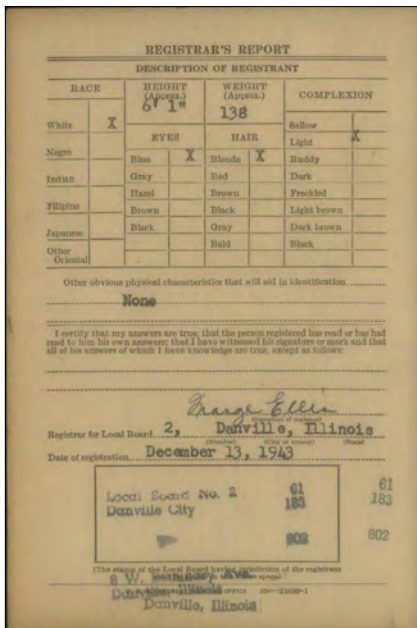 REGISTRAR'S REPORT
DESCRIPTION OF REGISTRANT
RACE
HEIGHT (Approx.)
WEIGHT (Approx.)
COMPLEXION
6' 1"
138
White X
Sallow
EYES
HAIR
Light X
Negro
Blue X
Blonde X
Ruddy
Indian
Gray
Red
Dark
Hazel
Brown
Freckled
Filipino
Brown
Black
Light brown
Japanese
Black
Gray
Dark brown
Other Oriental
Bald
Black
Other obvious physical characteristics that will aid in identification
None
I certify that my answers are true; that the person registered has read or has had
read to him his own answers; that I have witnessed his signature or mark and that
all of his answers of which I have knowledge are true, except as follows:
Marge Ellis
(Signature of registrar)
Registrar for Local Board 2, Danville, Illinois
(Number) (City or county) (State)
Date of registration December 13, 1943
Local Board No. 2 61 61
Danville City 183 183
802 802
(The stamp of the Local Board having jurisdiction of the registrant
8 W. Ave.
Danville, Illinois OFFICE
Danville, Illinois